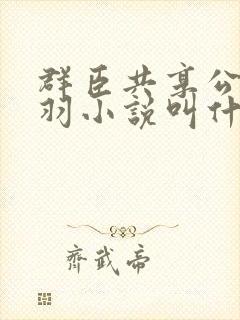 群臣共享公
羽小說叫什
齊武帝